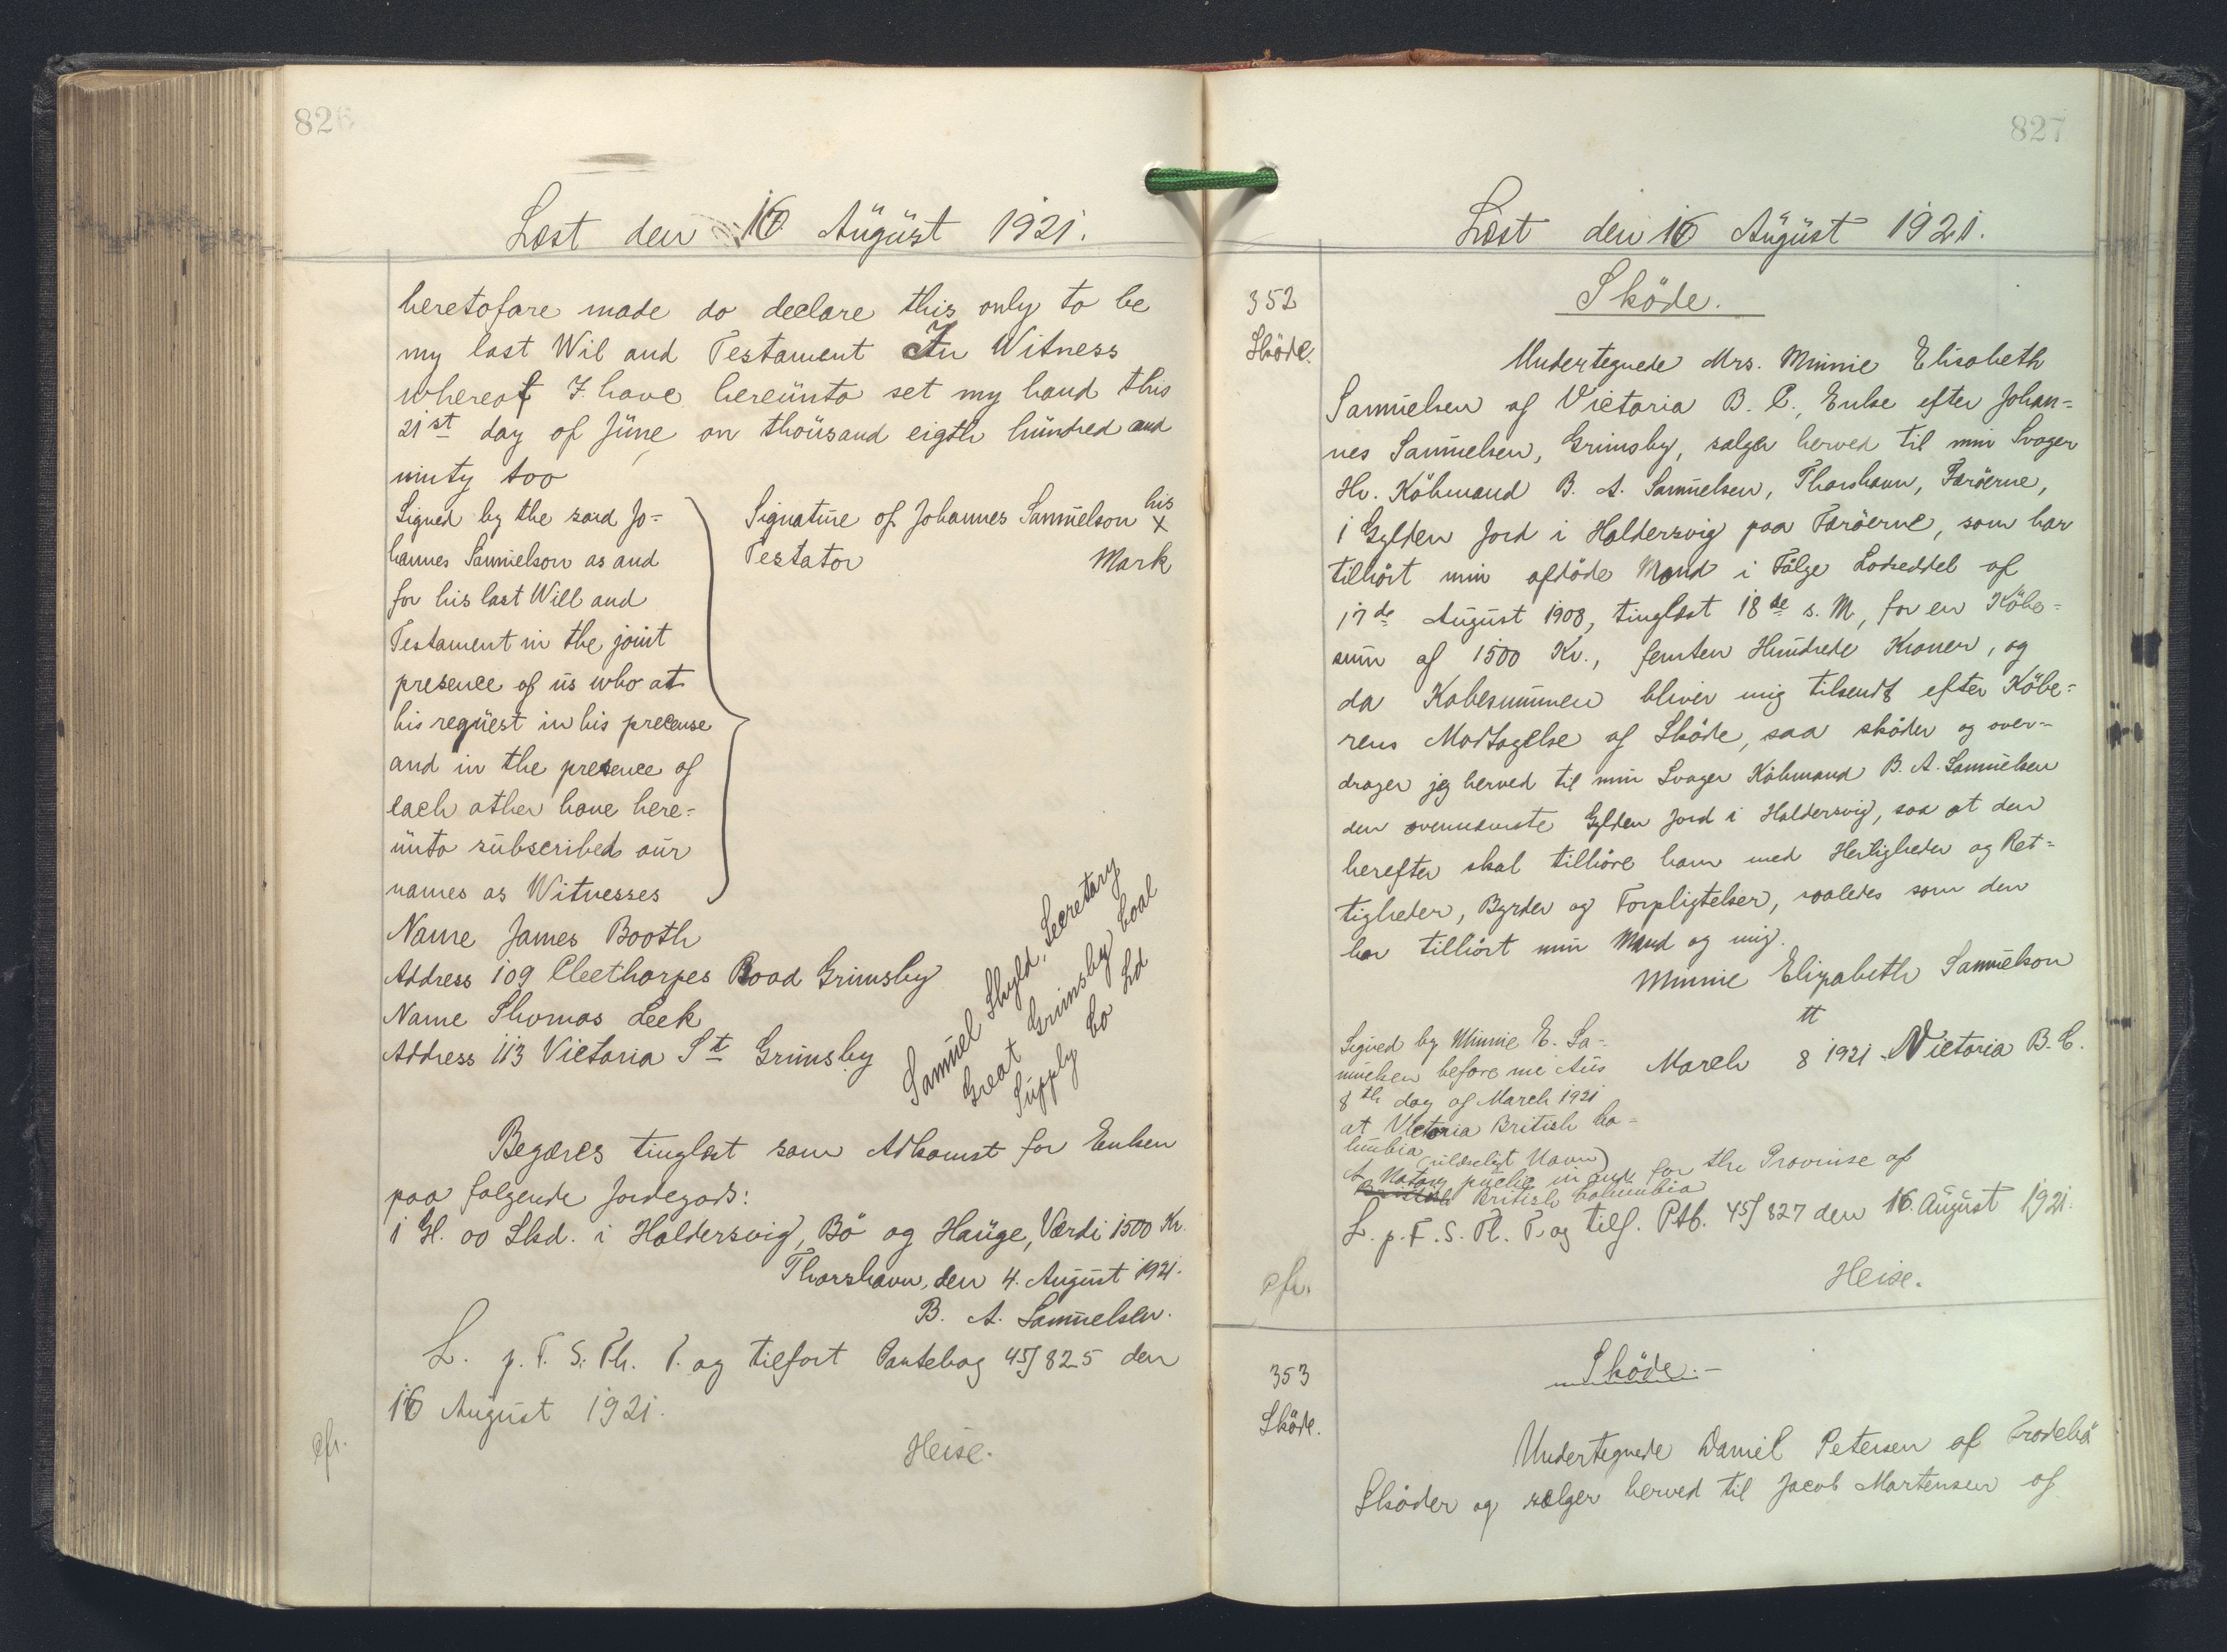 826
Læst den 16 August 1921.
heretofare made do declare this only to be
my last Wil and Testament In Witness
whereof I have hereunto set my hand this
21st day of June on thousand eigth hundred and
ninty too
Signed by the said Jo=
hannes Samuelson as and
for his last Will and
Testament in the joint
presence of us who at
his request in his precense
and in the presence of
each other have here=
unto subscribed our
names as Witnesses
Signature of Johannes Samuelson his
x
Testator Mark
Name James Booth
Address 109 Cleethorpes Road Grimsby
Name Thomas Leek
Address 113 Victoria St Grimsby
Samuel Secretary
Great Grimsby Coal
Supply Co Ld
Begæres tinglæst som Adkomst for Enken
paa følgende Jordegods:
1 Gl. 00 Skd. i Haldersvig, Bö og Hauge, Værdi 1500 Kr.
Thorshavn, den 4. August 1921.
B. A. Samuelsen.
L. p. F. S. Th. T. og tilført Pantebog 45/825 den
16 August 1921.
cfr.
Heise.
827
Læst den 16 August 1921.
352
Sköde.
Sköde.
Undertegnede Mrs. Minnie Elisabeth
Samuelsen af Victoria B. C., Enke efter Johan=
nes Samuelsen, Grimsby, sælger herved til min Svoger
Hr. Köbmand B. A. Samuelsen, Thorshavn, Færöerne,
1 Gylden Jord i Haldersvig paa Færöerne, som har
tilhört min afdöde Mand i Fölge Lodseddel af
17de August 1908, tinglæst 18de s. M, for en Köbe=
sum af 1500 Kr., femten Hundrede Kroner, og
da Köbesummen bliver mig tilsendt efter Köbe=
rens Modtagelse af Sköde, saa sköder og over=
drager jeg herved til min Svoger Köbmand B. A. Samuelsen
den ovennævnte Gylden Jord i Haldersvig, saa at den
herefter skal tilhöre ham med Herligheder og Ret=
tigheder, Byrder og Forpligtelser, saaledes som den
har tilhört min Mand og mig.
Minnie Elizabeth Samuelson
March 8th 1921. Victoria B. C.
Signed by Minnie E. Sa=
muelsen before me this
8th day of March 1921
at Victoria British Co=
lumbia
(ulæseligt Navn)
A Notary puclic in and for the Provinse of
British Columbia
L. p. F. S. Th. T. og tilf. Ptb. 45/827 den 16. August 1921.
cfr.
Heise.
353
Sköde.
Sköde.-
Undertegnede Daniel Petersen af Frodebö
Sköder og sælger herved til Jacob Mortensen af